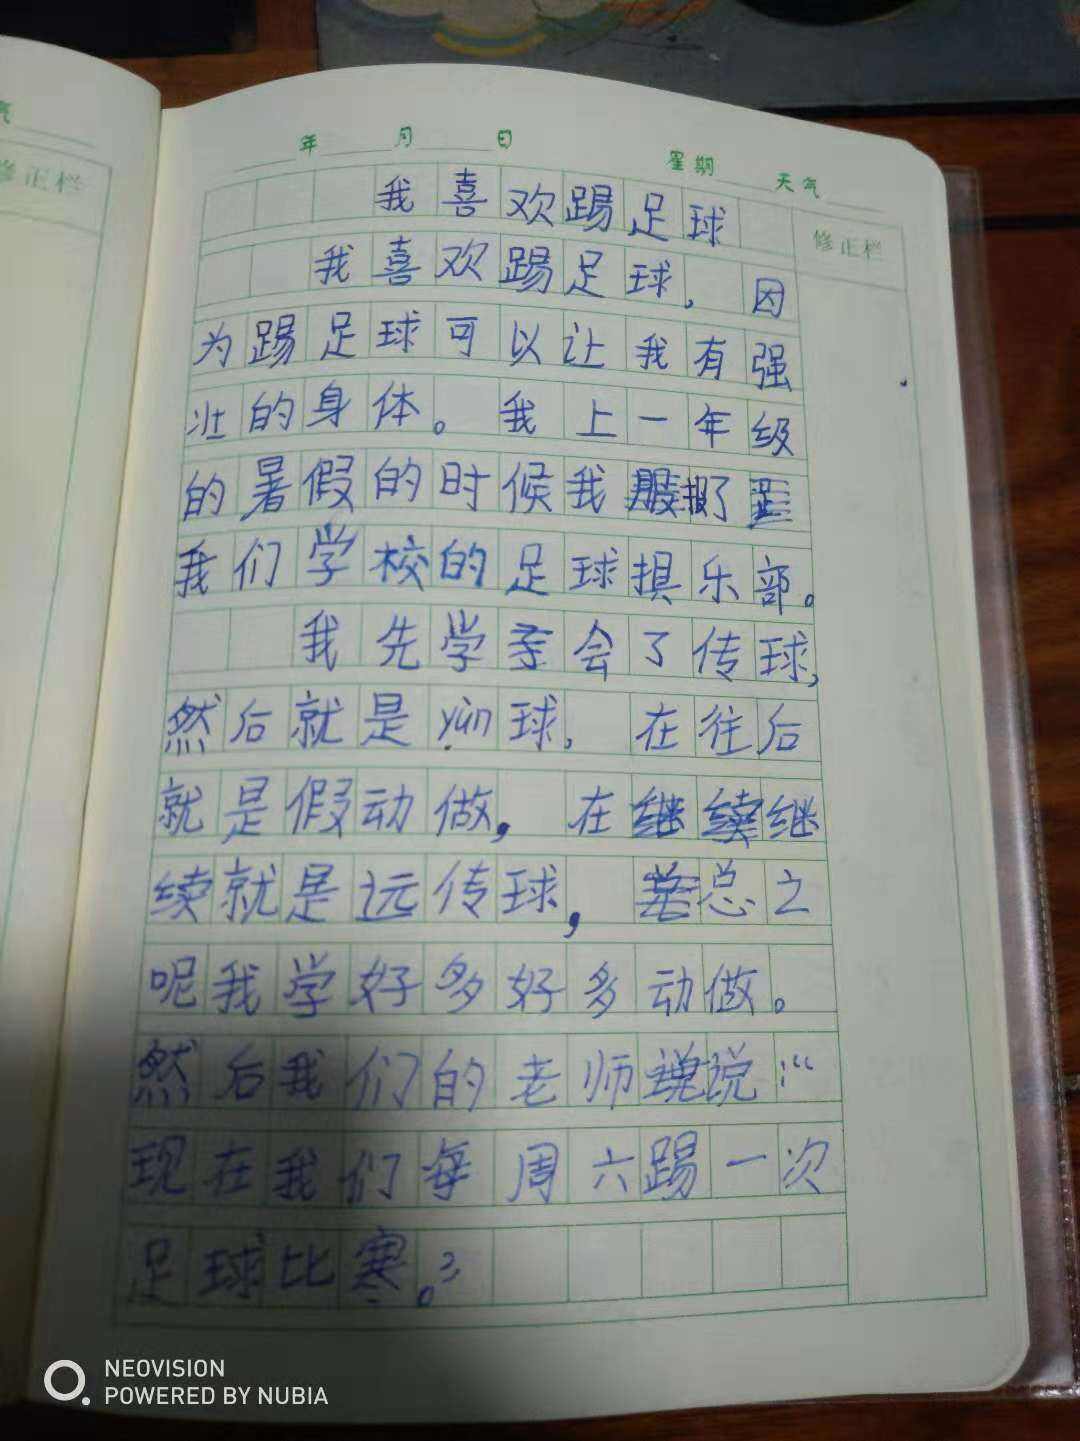 气
修正栏
年 月 日 星期 天气
修正栏
我喜欢踢足球
我喜欢踢足球，因
为踢足球可以让我有强
壮的身体。我上一年级
的暑假的时候我报了
我们学校的足球俱乐部。
我先学会了传球，
然后就是yùn球，在往后
就是假动做，在继
续就是远传球，总之
呢我学好多好多动做。
然后我们的老师说：“
现在我们每周六踢一次
足球比寒。”
NEOVISION
POWERED BY NUBIA